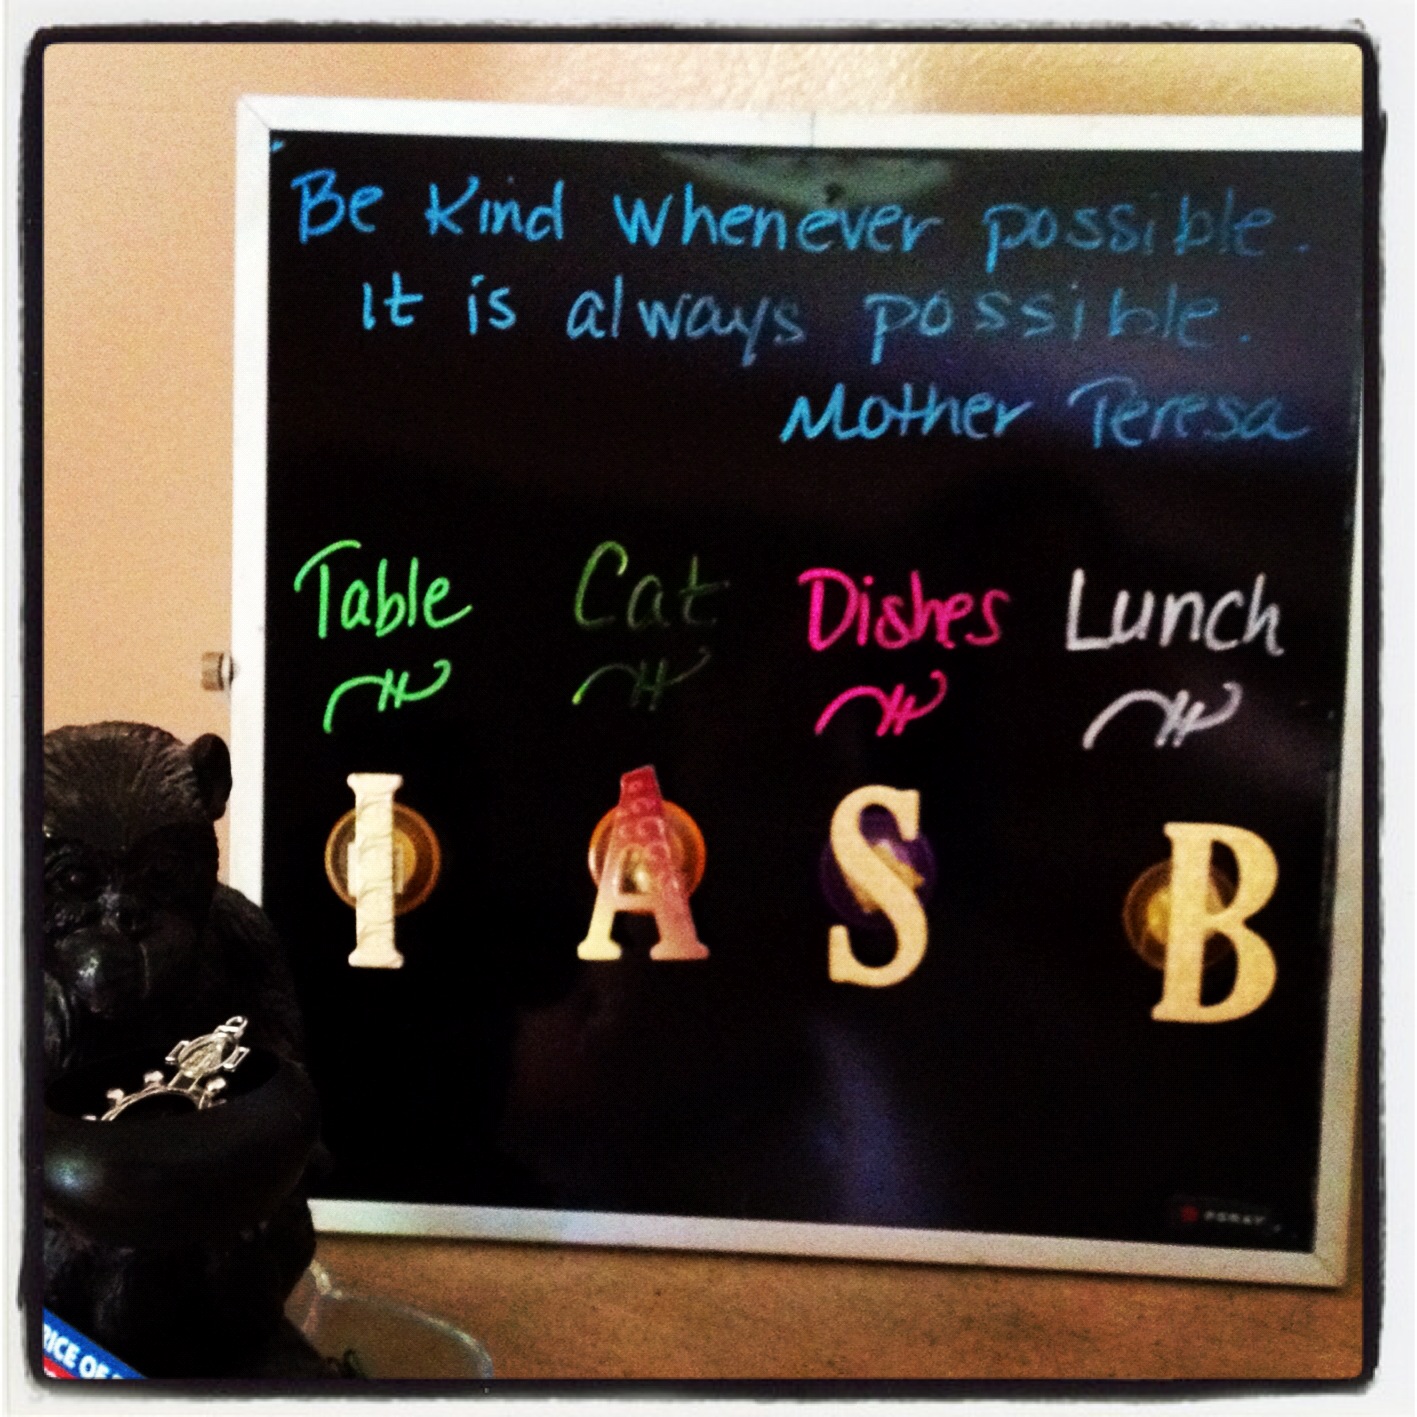 Be Kind whenever possible.
It is always possible.
Mother Teresa
Table Cat Dishes Lunch
I A S B
RICE OF